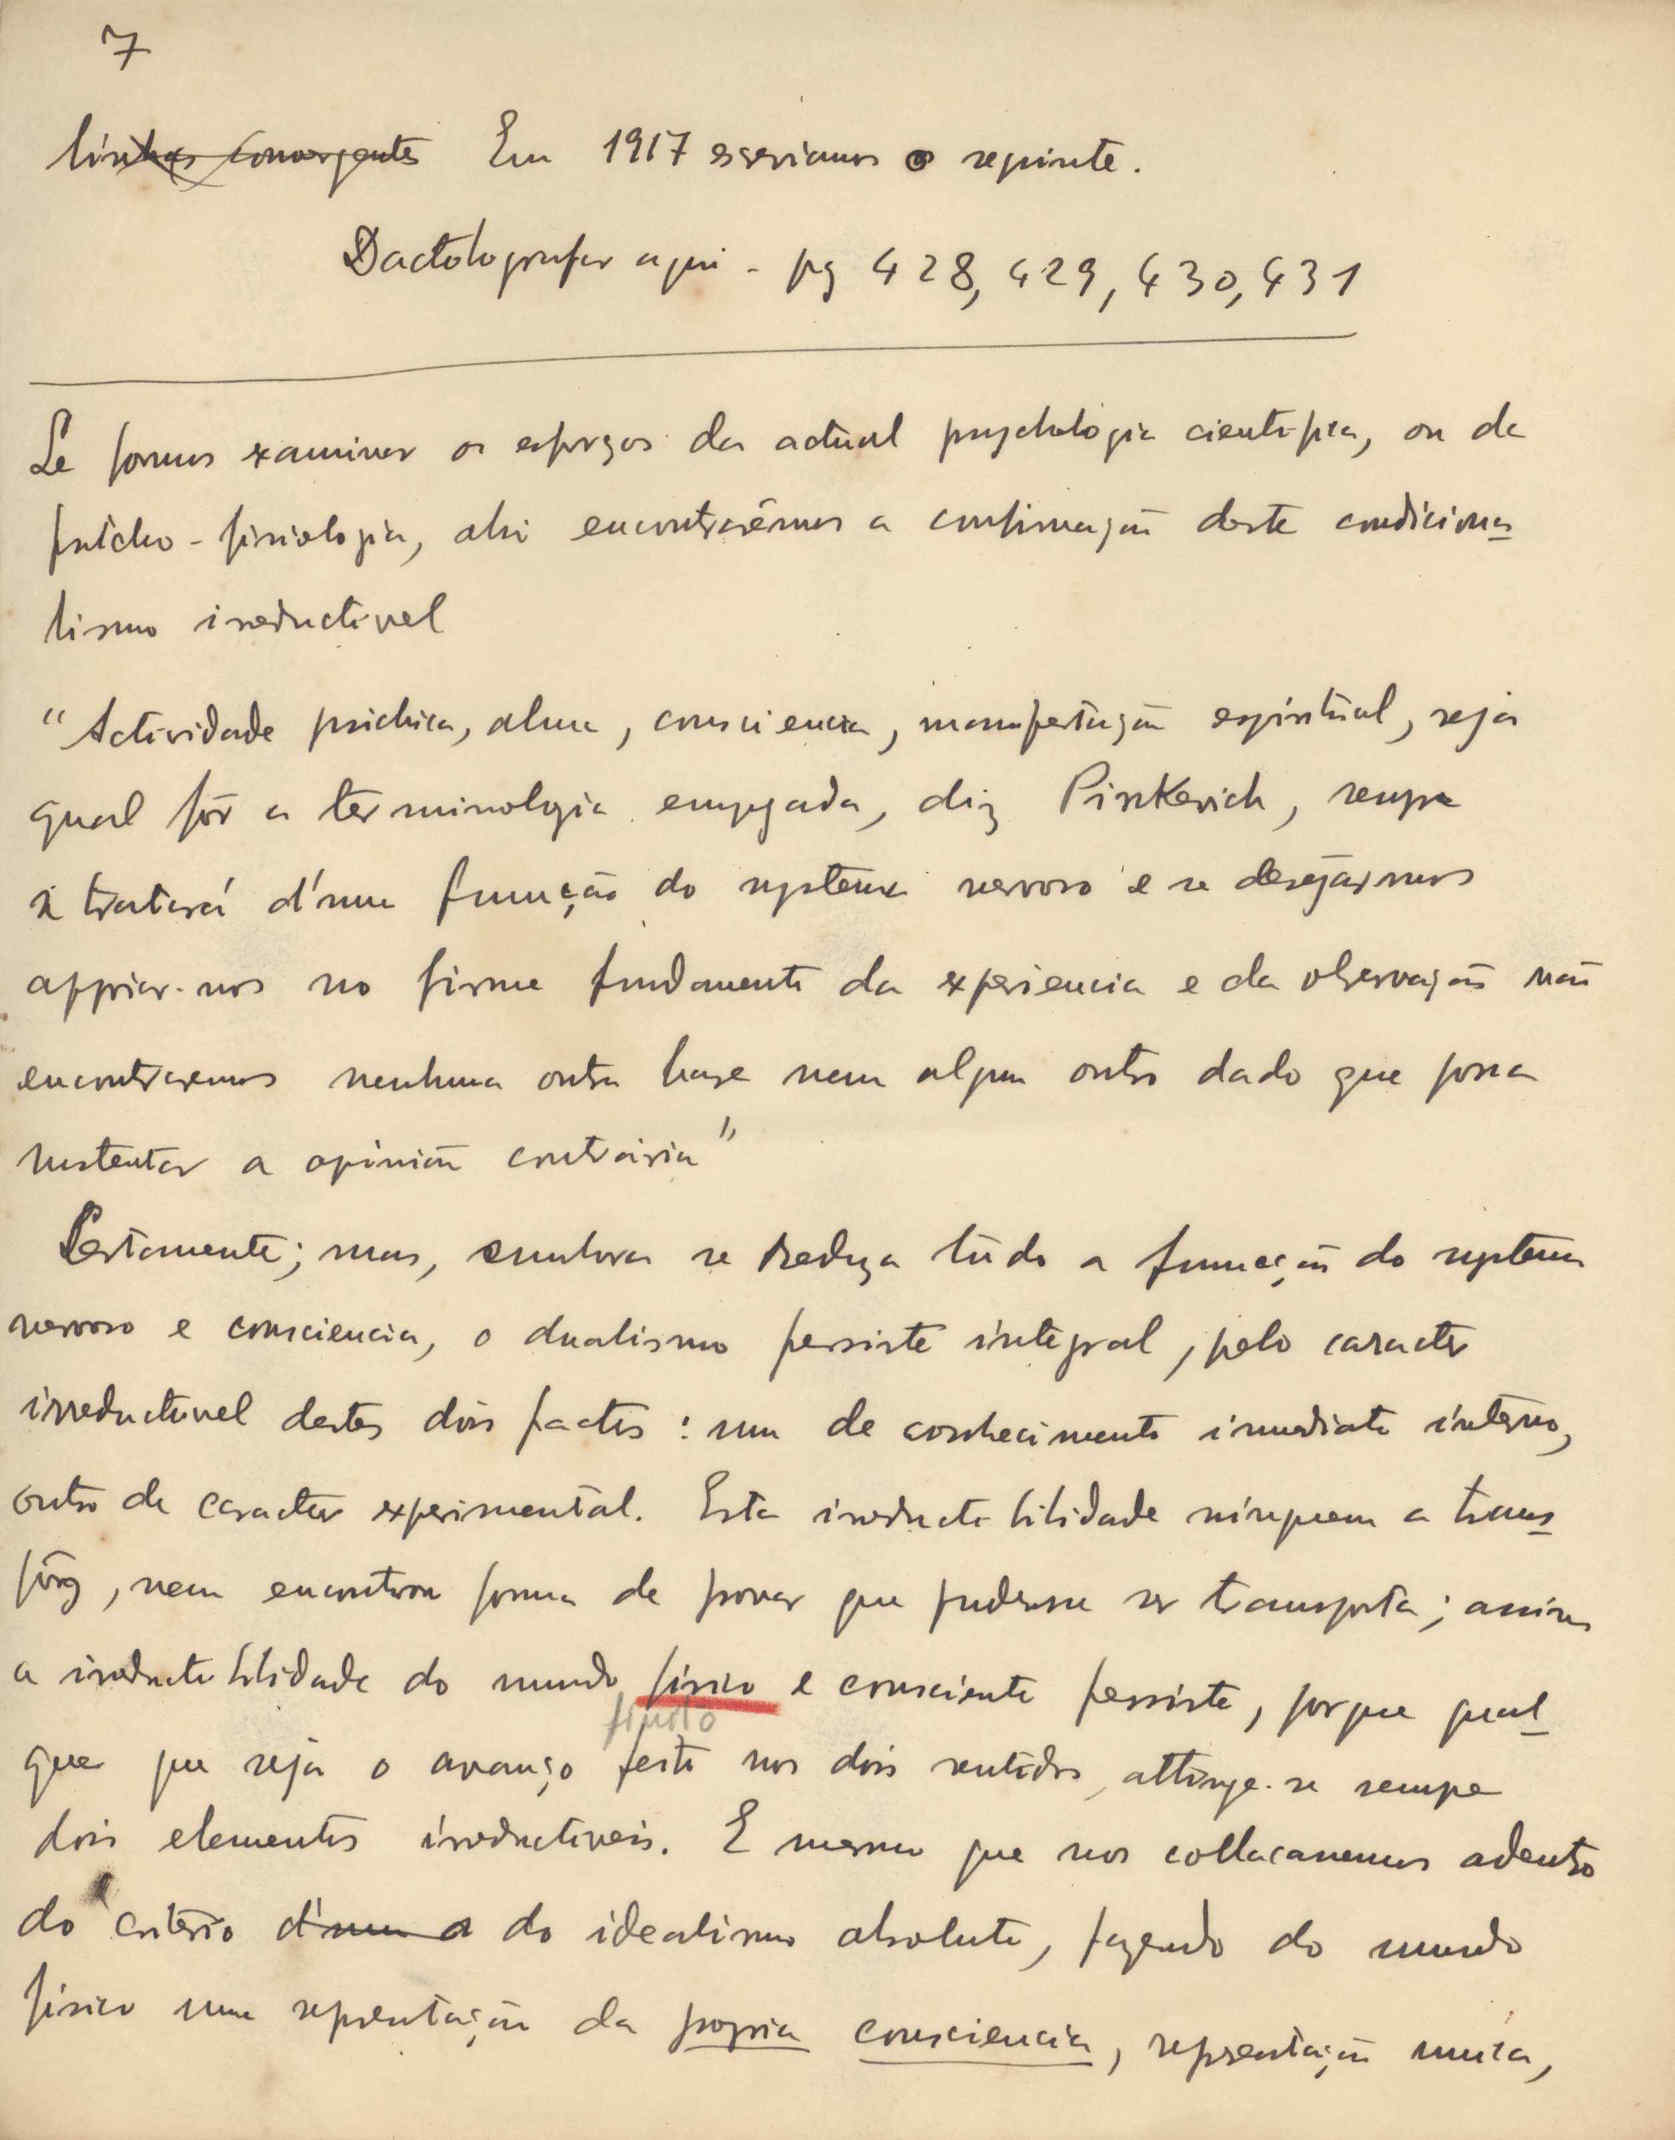 7
linhas convergentes Em 1917 escreviamos o seguinte.
Dactolografar aqui - pg 428, 429, 430, 431
Se formos examinar os esforços da actual psychologia cientifica, ou da
psicho-fisiologia, ahi encontrarêmos a confirmação deste condiciona-
lismo ireductivel
"Actividade psichica, alma, consciencia, manifestação espiritual, seja
qual fôr a terminologia empregada, diz Pinkevich, sempre
se tratará d'uma funcção do systema nervoso e se desejarmos
appoiar-nos no firme fundamento da experiencia e da observação não
encontraremos nenhuma outra base nem algum outro dado que possa
sustentar a opinião contrária"
Certamente; mas, embora se reduza tudo a funcção do systema
nervoso e consciencia, o dualismo persiste integral, pelo caracter
irreductivel destes dois factos: um de conhecimento imediato interno,
outro de caracter experimental. Esta ireductibilidade ninguem a trans-
pôz, nem encontrou forma de provar que pudesse ser transposta; assim
a ireductibilidade do mundo físico e consciente persiste, porque qual-
fisico
quer que seja o avanço feito nos dois sentidos, attinge-se sempre
dois elementos ireductiveis. E mesmo que nos collacassemos adentro
do critério d'um a do idealismo absoluto, fazendo do mundo
físico uma representação da propria consciencia, representação unica,